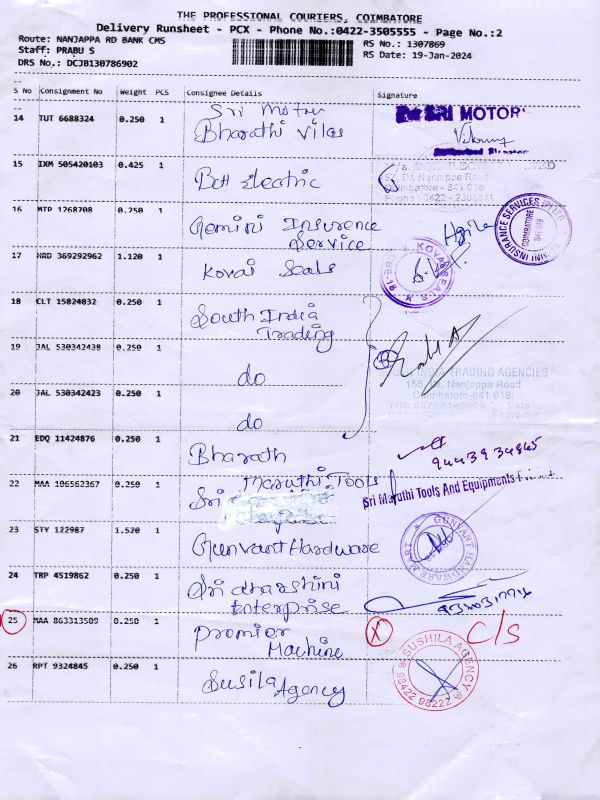 THE PROFESSIONAL COURIERS, COIMBATORE
Delivery Runsheet - PCX - Phone No.:0422-3505555 - Page No.:2
Route: NANJAPPA RD BANK CMS
RS No.: 1307869
Staff: PRABU S
RS Date: 19-Jan-2024
DRS No.: DCJB130786902
S No Consignment No Weight PCS Consignee Details Signature
14 TUT 6688324 0.250 1 Sri Motor
Bharathi Vilas
SRI MOTOR
15 IXM 505420103 0.425 1 Bch Electric
Dr. Nanjappa Road
Coimbatore - 641 018
Phone : 0422 -
16 MTP 1268708 0.250 1 Gemini Insurence
Service
INSURANCE SERVICES
COIMBATORE
641 018
17 HRD 369292962 1.120 1 Kovai Seals
KOVAI SEALS
18 CLT 15824832 0.250 1 South India
Trading
19 JAL 530342438 0.250 1 do
INDIA TRADING AGENCIES
156, Dr. Nanjappa Road
Coimbatore-641 018.
20 JAL 530342423 0.250 1 do
21 EDQ 11424876 0.250 1 Bharath
22 MAA 106562367 0.250 1 Sri Maruthi Tools
Sri Maruthi Tools And Equipments
23 STY 122987 1.520 1 Gunvant Hardware
GUNVANT HARDWARE MART
24 TRP 4519862 0.250 1 Sri dharshini
Enterprise
25 MAA 863313509 0.250 1 Premier
Machine
X C/S
26 RPT 9324845 0.250 1 Susila Agency
SUSHILA AGENCY